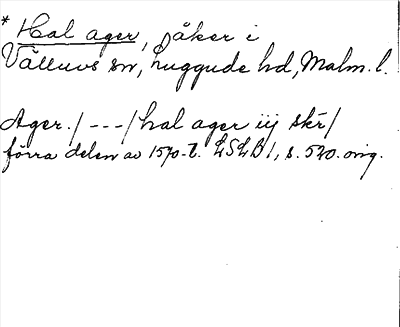 * Hal ager, åker i
Välluvs sn, Luggude hd, Malm. l.
Ager. / - - - / hal ager iij skr /
förra delen av 1570-t. LSLB 1, s. 520. orig.